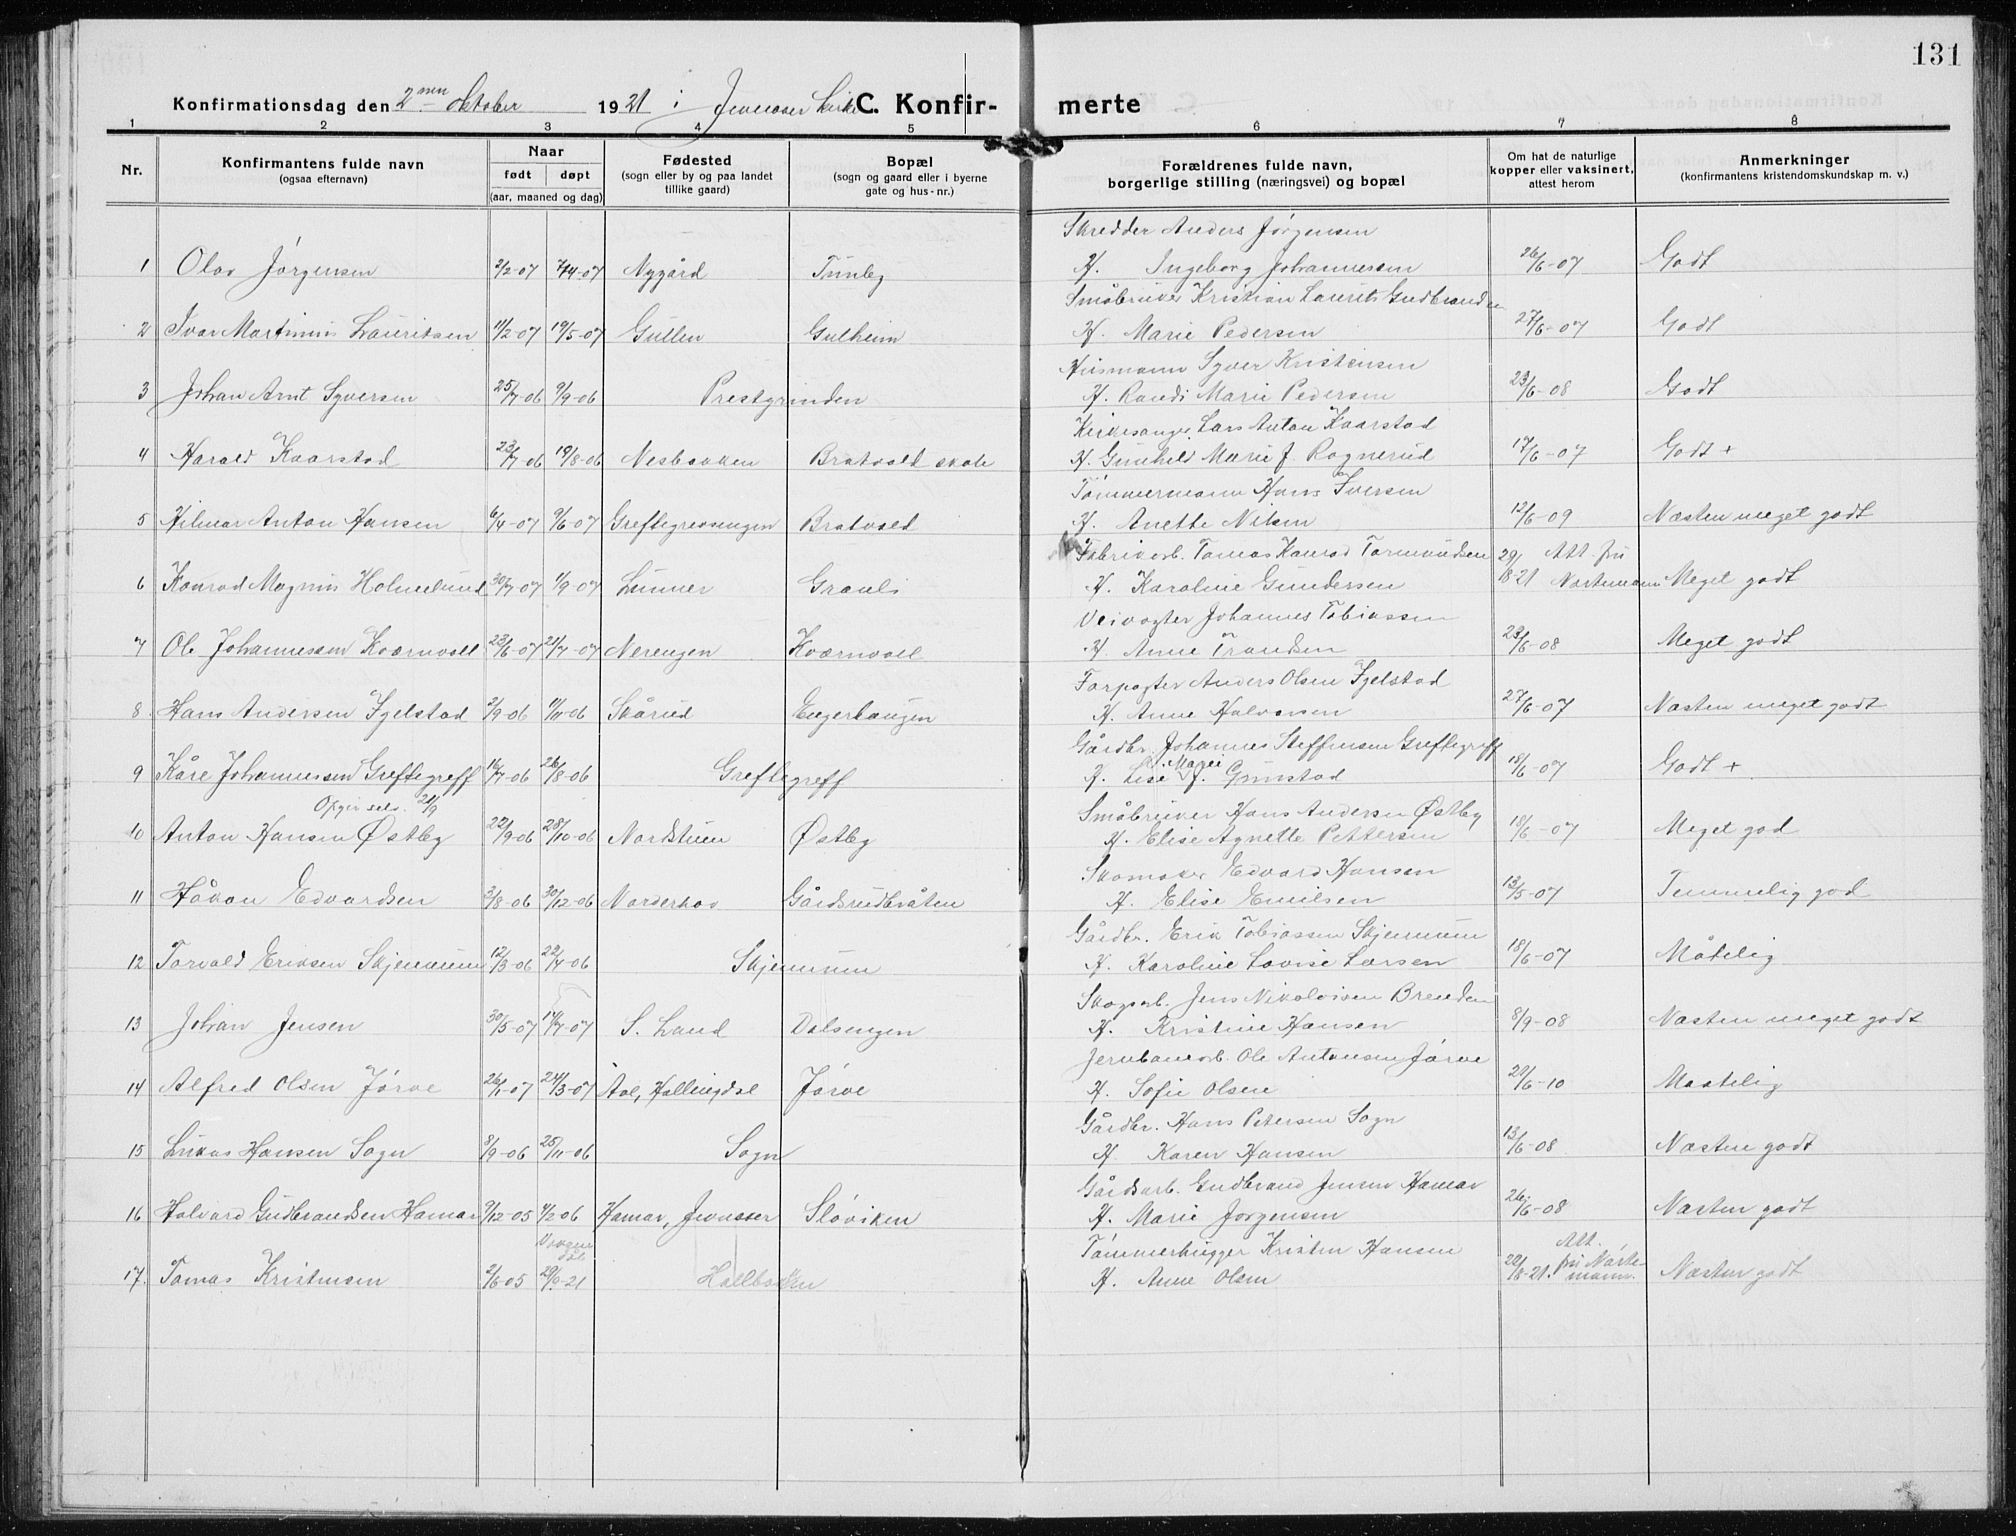 131
Konfirmationsdag den 2nen oktober 1921 i Jevnaker kirke C. Konfirmerte
1 2 3 4 5 6 7 8
Nr. Konfirmantens fulde navn (ogsaa efternavn) Naar født døpt (aar, maaned og dag) Fødested (sogn eller by og paa landet tillike gaard) Bopæl (sogn og gaard eller i byerne gate og hus-nr.) Forældrenes fulde navn, borgerlige stilling (næringsvei) og bopæl Om hat de naturlige kopper eller vaksinert, attest herom Anmerkninger (konfirmantens kristendomskundskap m. v.)
Skredder Anders Jørgensen
1 Olav Jørgensen 2/2-07 7/4-07 Nygård Tunby H. Ingeborg Johannessen 26/6-07 Godt
Småbruker Kristian Laurits Gudbrandsen
2 Ivar Martinus Lauritsen 11/2-07 19/5-07 Gullen Gulheim H. Marie Pedersen 27/6-07 Godt
Husmann Syver Kristensen
3 Johan Arnt Syversen 25/7-06 9/9-06 Prestgrinden H. Randi Marie Pedersen 23/6-08 Godt
Kirkesanger Lars Anton Kaarstad
4 Harald Kaarstad 23/7-06 19/8-06 Nesbakken Bratvold skole H. Gunhild Marie f. Rognerud 17/6-07 Godt +
Tømmermann Hans Iversen
5 Hilmar Anton Hansen 6/4-07 9/6-07 Greftegrevsengen Bratvold H. Anette Nilsen 12/6-09 Næsten meget godt
Fabrikarb. Tomas Konrad Tormundsen 29/ Att. fru
6 Konrad Magnus Holmelund 30/7-07 1/9-07 Lunner Graali H. Karoline Gundersen 18-21 Nøstemann Meget godt
Veivogter Johannes Tobiassen
7 Ole Johannessen Kværnvoll 23/6-07 21/7-07 Nerengen Kværnvoll H. Anne Trondsen 23/6-08 Meget godt
Forpagter Anders Olsen Igelstad
8 Hans Andersen Igelstad 2/9-06 11/11-06 Skårud Engerhaugen H. Anne Halvorsen 27/6-07 Næsten meget godt
Gårdbr. Johannes Steffensen Greftegreff
9 Kåre Johannessen Greftegreff 16/7-06 26/8-06 Greftegreff H. Lise Marie f. Grinstad 18/6-07 Godt +
Opgir selv 21/9 Småbruker Hans Andersen Østby
10 Anton Hansen Østby 22/9-06 28/10-06 Nordstuen Østby H. Elise Agnette Pettersen 18/6-07 Meget god
Skomaker Edvard Hansen
11 Håkon Edvardsen 3/8-06 30/12-06 Norderhov Gårdsrudbråten H. Elise Emilsen 13/5-07 Temmelig god
Gårdbr. Erik Tobiassen Skjennum
12 Torvald Eriksen Skjennum 12/3-06 22/4-06 Skjennum H. Karoline Lovise Larsen 18/6-07 Måtelig
Skogsarb. Jens Nikolaisen Brenden
13 Johan Jensen 30/5-07 14/7-07 S. Land Dalsengen H. Kristine Hansen 8/9-08 Næsten meget godt
Jernbanearb. Ole Antonsen Jørve
14 Alfred Olsen Jørve 26/1-07 24/3-07 Aal, Hallingdal Jørve H. Sofie Olsen 29/6-10 Maatelig
Gårdbr. Hans Petersen Sogn
15 Lukas Hansen Sogn 8/9-06 25/11-06 Sogn H. Karen Hansen 13/6-08 Næsten godt
Gårdsarb. Gudbrand Jensen Hamar
16 Halvard Gudbrandsen Hamar 7/12-05 4/2 06 Hamar, Jevnaker Sløviken H. Marie Jørgensen 26/6-08 Næsten godt
Tømmerhugger Kristen Hansen Att.
17. Tomas Kristensen 2/6-05 29/9-21 Hallbakken H. Anne Olsen 29/8-21. fru Nøstemann. Næsten godt